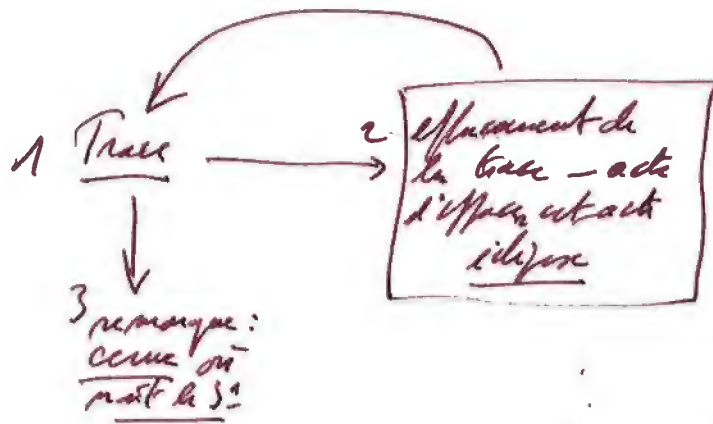 1 Trace
2 effacement de
la trace – acte
d'effacer cet acte
éclipse
3 remarque :
cerne où
naît le S1